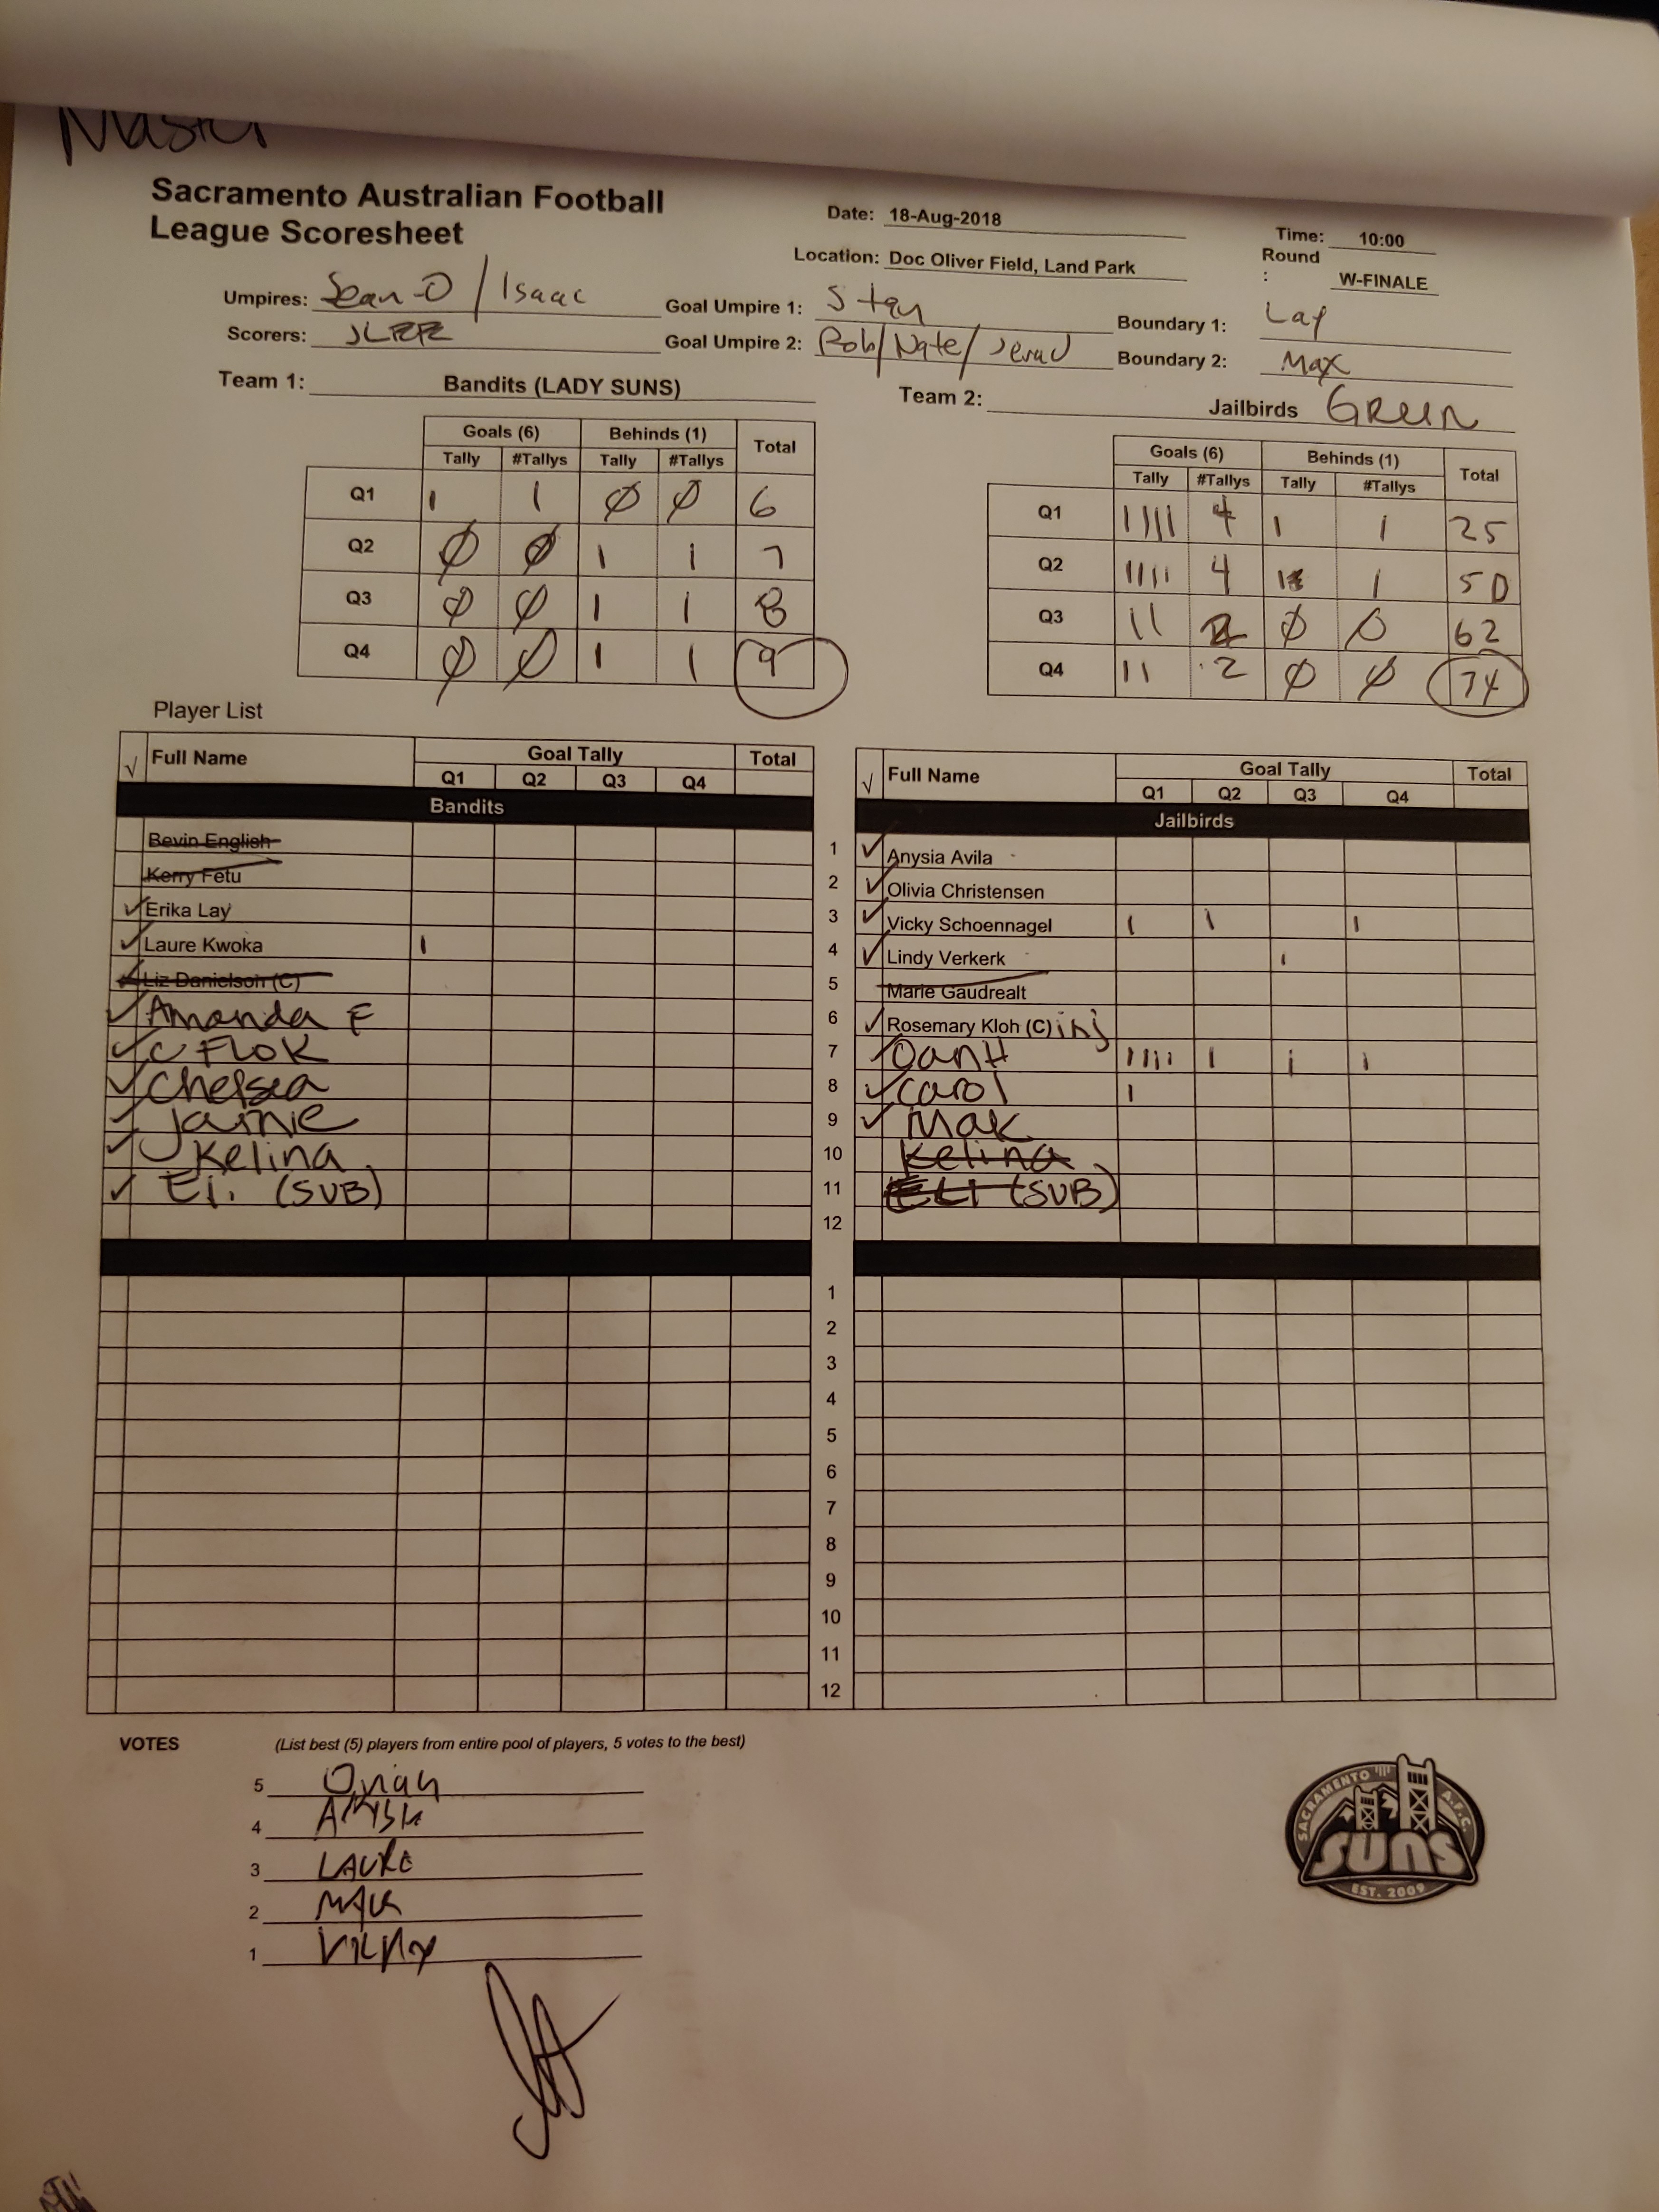 Master
Sacramento Australian Football
League Scoresheet
Date: 18-Aug-2018
Time: 10:00
Location: Doc Oliver Field, Land Park
Round
: W-FINALE
Umpires: Sean-O / Isaac
Goal Umpire 1: Stan
Boundary 1: Lay
Scorers:
Goal Umpire 2: Rob/Nate/Jerad
Boundary 2: Max
Team 1: Bandits (LADY SUNS)
Team 2: Jailbirds Green
Goals (6) Behinds (1) Total
Tally #Tallys Tally #Tallys
Q1 I 1 Ø Ø 6
Q2 Ø Ø I 1 7
Q3 Ø Ø I 1 8
Q4 Ø Ø I 1 9
Goals (6) Behinds (1) Total
Tally #Tallys Tally #Tallys
Q1 IIII 4 I 1 25
Q2 IIII 4 I 1 50
Q3 II 2 Ø Ø 62
Q4 II 2 Ø Ø 74
Player List
√ Full Name Goal Tally Total
Q1 Q2 Q3 Q4
Bandits
Bevin English
Kerry Fetu
✓ Erika Lay
✓ Laure Kwoka I
✓ Liz Danielson (C)
✓ Amanda F
✓ C FLOK
✓ Chelsea
✓ Jaimie
✓ Kelina
✓ (SUB)
√ Full Name Goal Tally Total
Q1 Q2 Q3 Q4
Jailbirds
1 ✓ Anysia Avila
2 ✓ Olivia Christensen
3 ✓ Vicky Schoennagel I I I
4 ✓ Lindy Verkerk I
5 Marie Gaudrealt
6 ✓ Rosemary Kloh (C) inj
7 ✓ OanH IIII I I I
8 ✓ Carol I
9 ✓ Mak
10 Kelina
11 ELI (SUB)
12
1
2
3
4
5
6
7
8
9
10
11
12
VOTES (List best (5) players from entire pool of players, 5 votes to the best)
5
4
3 LAURE
2 MAK
1
SACRAMENTO A.F.C.
SUNS
EST. 2009